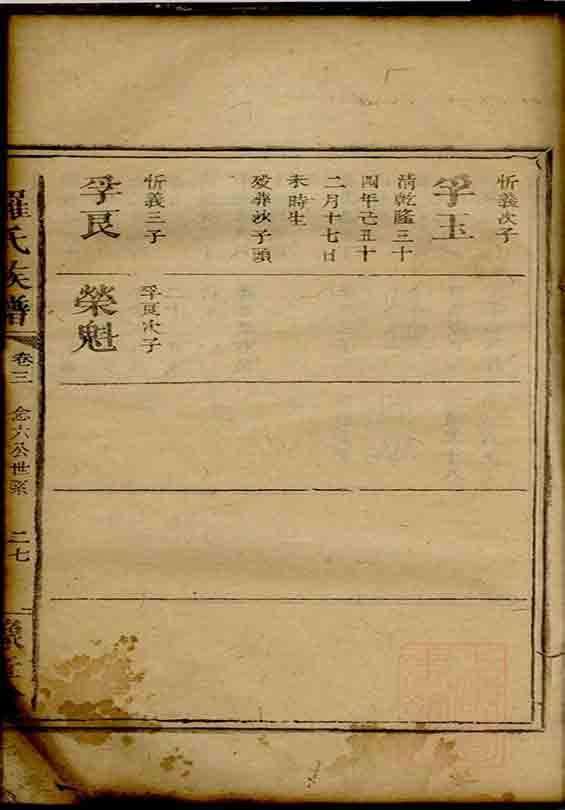 忻義次子
孚玉
清乾隆三十
四年己丑十
二月十七日
未時生
歿葬汝子頭
忻義三子
孚艮
孚艮次子
榮魁
羅氏族譜
卷三
念六公世系
二七